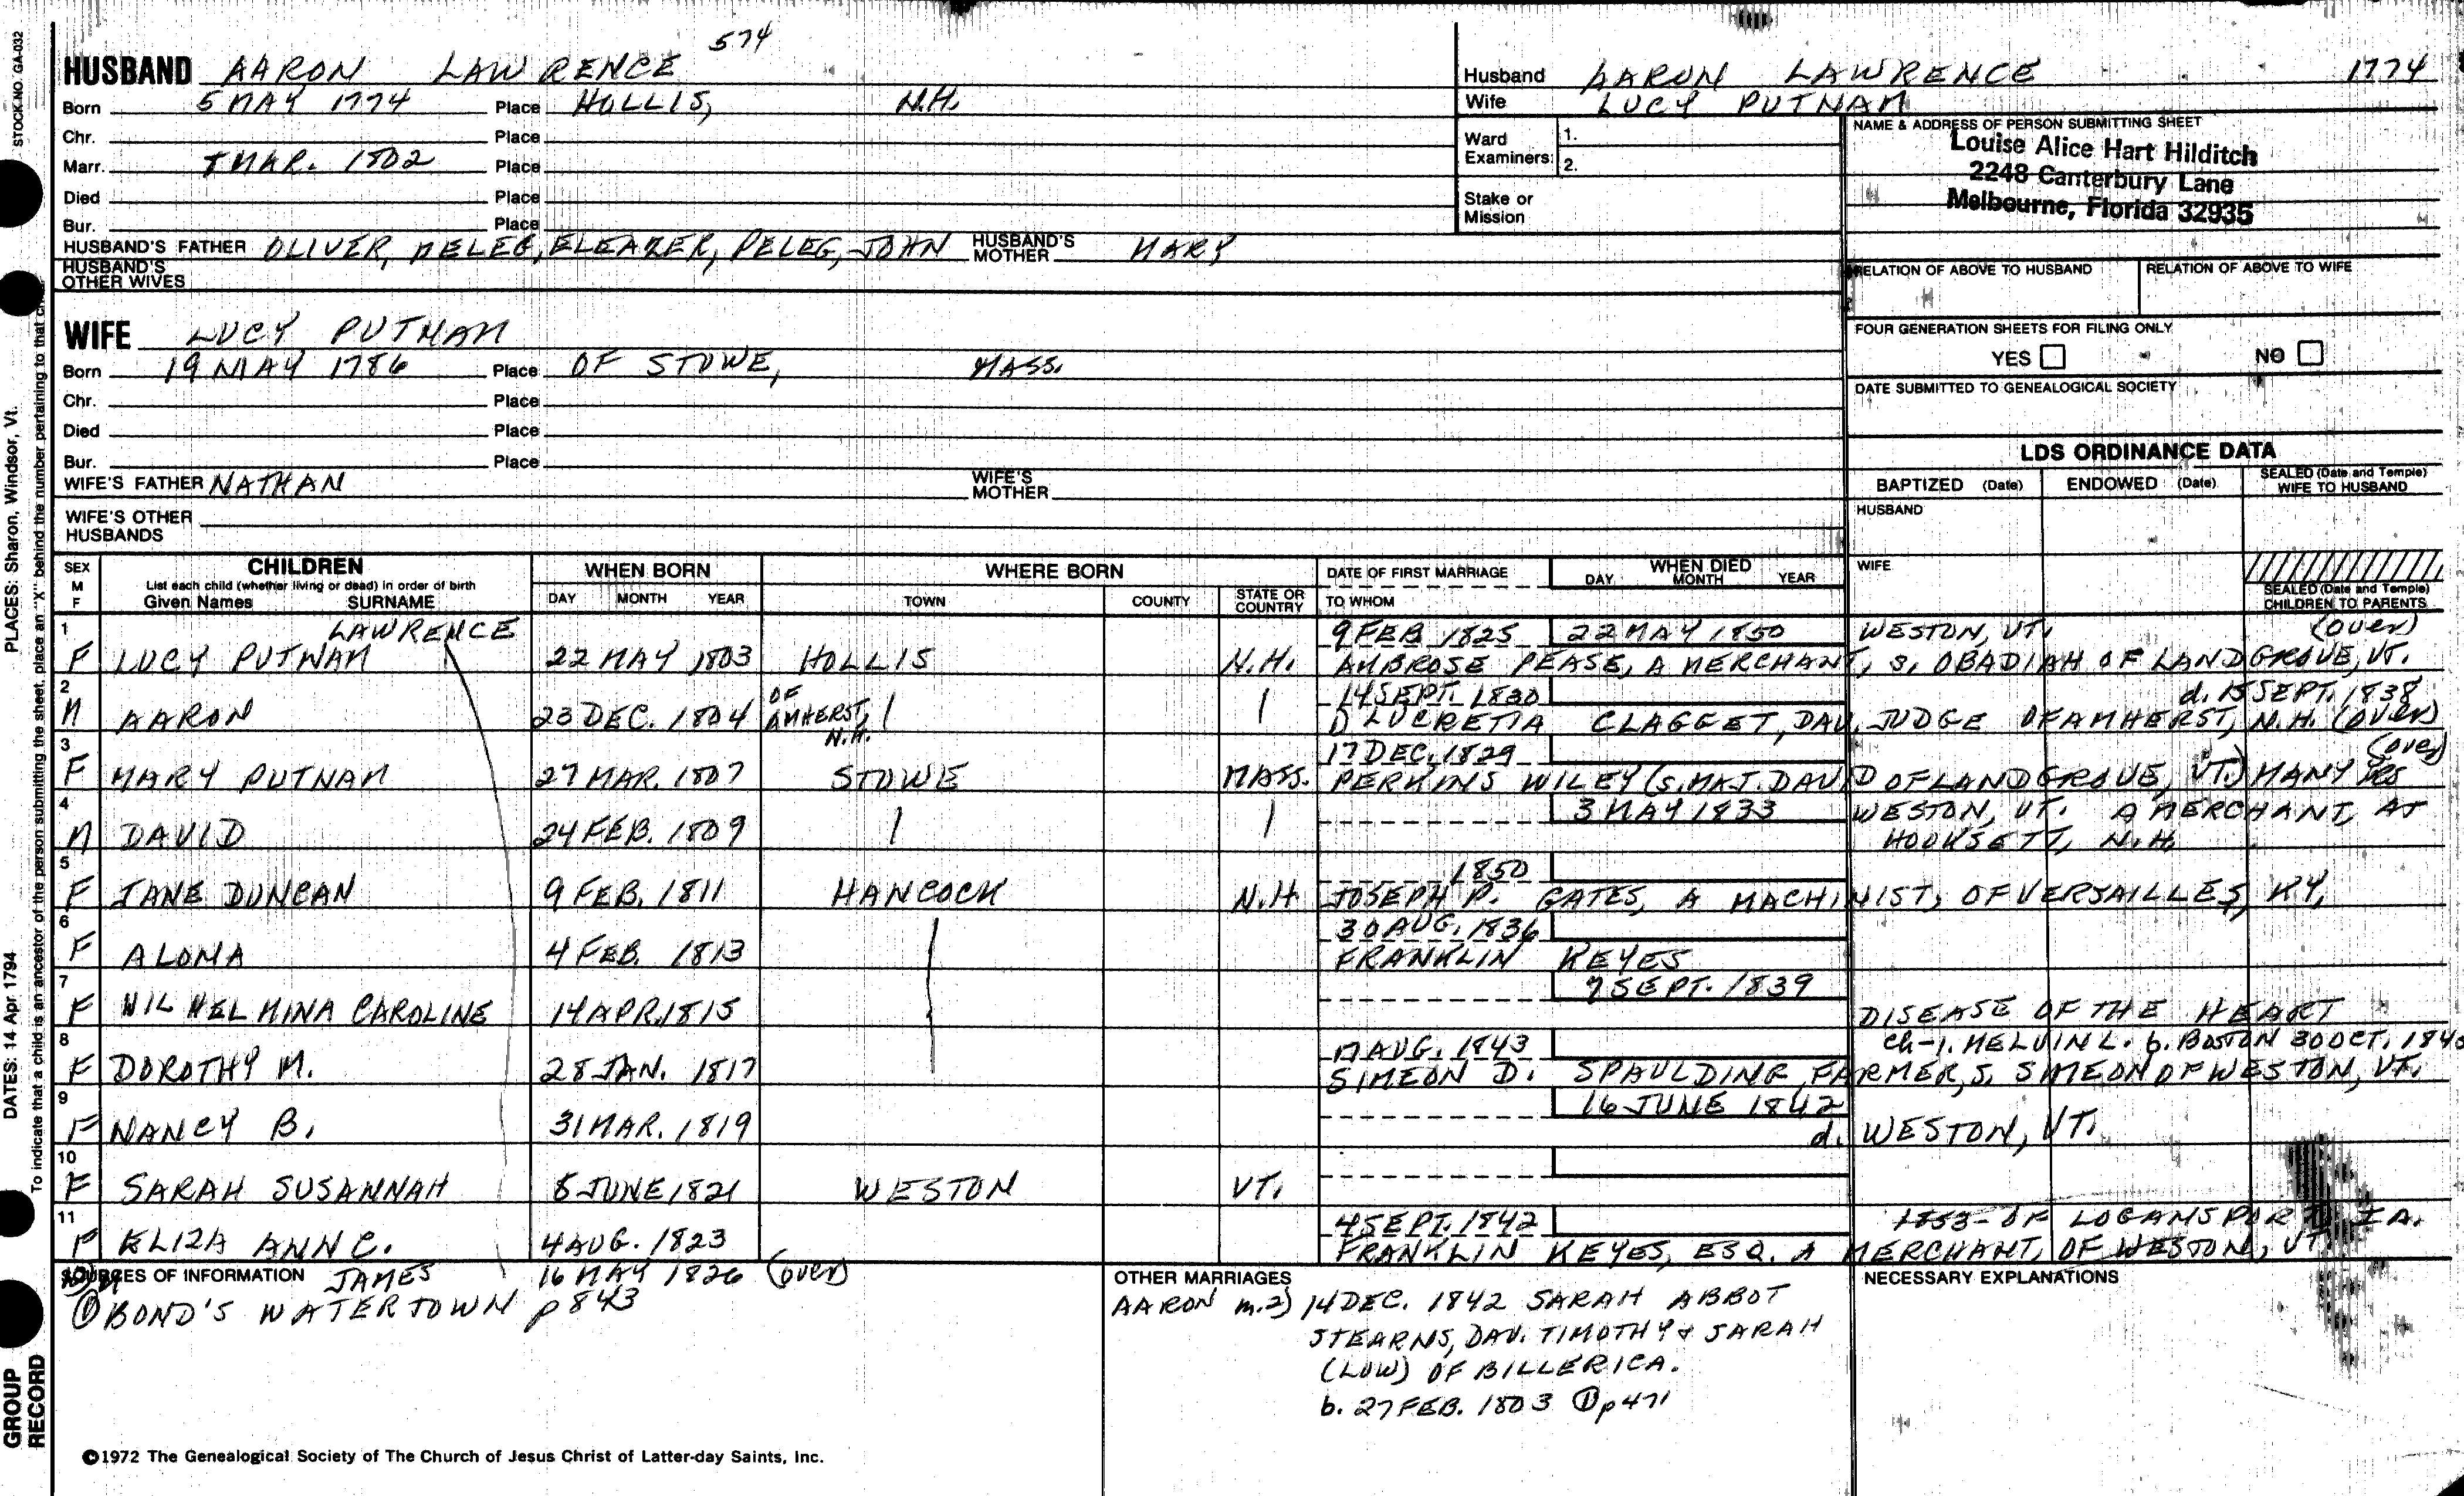 574
HUSBAND AARON LAWRENCE
Born 5 MAY 1774 Place HOLLIS, N.H.
Chr. Place
Marr. MAR. 1802 Place
Died Place
Bur. Place
HUSBAND'S FATHER OLIVER, PELEG, ELEAZER, PELEG, JOHN HUSBAND'S MOTHER MARY
HUSBAND'S OTHER WIVES
WIFE LUCY PUTNAM
Born 19 MAY 1786 Place OF STOWE, MASS.
Chr. Place
Died Place
Bur. Place
WIFE'S FATHER NATHAN WIFE'S MOTHER
WIFE'S OTHER HUSBANDS
Husband AARON LAWRENCE 1774
Wife LUCY PUTNAM
Ward Examiners: 1.
2.
Stake or Mission
NAME & ADDRESS OF PERSON SUBMITTING SHEET
Louise Alice Hart Hilditch
2248 Canterbury Lane
Melbourne, Florida 32935
RELATION OF ABOVE TO HUSBAND RELATION OF ABOVE TO WIFE
FOUR GENERATION SHEETS FOR FILING ONLY
YES NO
DATE SUBMITTED TO GENEALOGICAL SOCIETY
LDS ORDINANCE DATA
BAPTIZED (Date) ENDOWED (Date) SEALED (Date and Temple) WIFE TO HUSBAND
HUSBAND
WIFE
SEALED (Date and Temple) CHILDREN TO PARENTS
SEX M F CHILDREN WHEN BORN WHERE BORN DATE OF FIRST MARRIAGE WHEN DIED
List each child (whether living or dead) in order of birth DAY MONTH YEAR
Given Names SURNAME DAY MONTH YEAR TOWN COUNTY STATE OR COUNTRY TO WHOM
1 LAWRENCE 9 FEB 1825 22 MAY 1850 WESTON, VT. (over)
F LUCY PUTNAM 22 MAY 1803 HOLLIS N.H. AMBROSE PEASE, A MERCHANT, S. OBADIAH OF LANDGROVE, VT.
2 OF AMHERST, N.H. 14 SEPT. 1830 d. 15 SEPT. 1838
M AARON 23 DEC. 1804 D LUCRETIA CLAGGET, DAU. JUDGE OF AMHERST, N.H. (over)
3 17 DEC. 1829 (over)
F MARY PUTNAM 27 MAR. 1807 STOWE MASS. PERKINS WILEY (S. MAJ. DAVID OF LANDGROVE, VT.) MANY YRS
4 3 MAY 1833 WESTON, VT. A MERCHANT AT
M DAVID 24 FEB. 1809 HOOKSETT, N.H.
5 1850
F JANE DUNCAN 9 FEB. 1811 HANCOCK N.H JOSEPH P. GATES, A MACHINIST, OF VERSAILLES, KY.
6 30 AUG. 1836
F ALOMA 4 FEB. 1813 FRANKLIN KEYES
7 7 SEPT. 1839
F WILHELMINA CAROLINE 14 APR. 1815 DISEASE OF THE HEART
8 AUG. 1843 Ch-1. MELVIN L. b. BOSTON 30 OCT.
F DOROTHY M. 28 JAN. 1817 SIMEON D. SPAULDING, FARMER, S. SIMEON OF WESTON, VT.
9 16 JUNE 1842
F NANCY B. 31 MAR. 1819 d. WESTON, VT.
10
F SARAH SUSANNAH JUNE 1821 WESTON VT.
11 4 SEPT. 1842 1853 - OF LOGANSPORT IA.
F ELIZA ANN C. 4 AUG. 1823 FRANKLIN KEYES, ESQ. A MERCHANT, OF WESTON, VT.
SOURCES OF INFORMATION JAMES 16 MAY 1826 (over)
① BOND'S WATERTOWN p 843
OTHER MARRIAGES
AARON m. 2) 14 DEC. 1842 SARAH ABBOT
STEARNS, DAU. TIMOTHY & SARAH
(LOW) OF BILLERICA.
b. 27 FEB. 1803 ① p 471
NECESSARY EXPLANATIONS
©1972 The Genealogical Society of The Church of Jesus Christ of Latter-day Saints, Inc.
STOCK NO. GA-032
PLACES: Sharon, Windsor, Vt.
DATES: 14 Apr 1794
To indicate that a child is an ancestor of the person submitting the sheet, place an "X" behind the number pertaining to that
GROUP RECORD